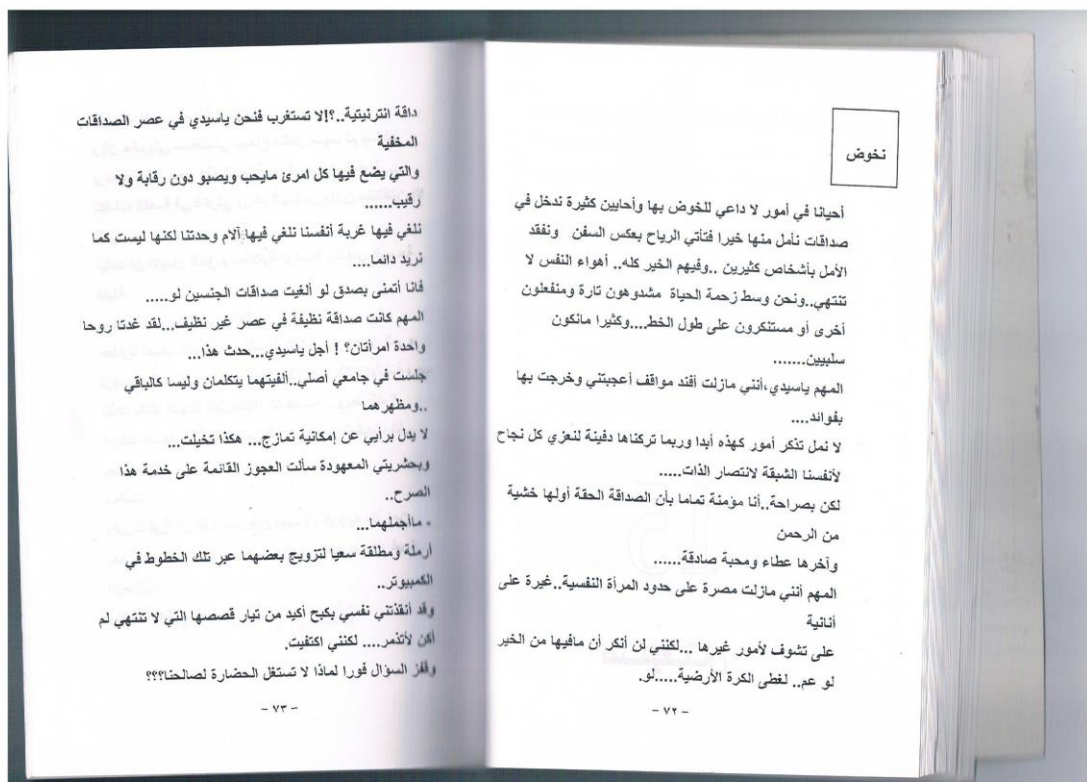 نخوض
أحيانا في أمور لا داعي للخوض بها وأحايين كثيرة ندخل في
صداقات نأمل منها خيرا فتأتي الرياح بعكس السفن ونفقد
الأمل بأشخاص كثيرين ..وفيهم الخير كله.. أهواء النفس لا
تنتهي..ونحن وسط زحمة الحياة مشدوهون تارة ومنفعلون
أخرى أو مستنكرون على طول الخط....وكثيرا مانكون
سلبيين.......
المهم ياسيدي،أنني مازلت أفند مواقف أعجبتني وخرجت بها
بفوائد....
لا نمل تذكر أمور كهذه أبدا وربما تركناها دفينة لنعزي كل نجاح
لأنفسنا الشبقة لانتصار الذات.....
لكن بصراحة..أنا مؤمنة تماما بأن الصداقة الحقة أولها خشية
من الرحمن
وآخرها عطاء ومحبة صادقة......
المهم أنني مازلت مصرة على حدود المرأة النفسية..غيرة على
أنانية
على تشوف لأمور غيرها ...لكنني لن أنكر أن مافيها من الخير
لو عم.. لغطى الكرة الأرضية.....لو.
- ٧٢ -
داقة انترنيتية..؟!لا تستغرب فنحن ياسيدي في عصر الصداقات
المخفية
والتي يضع فيها كل امرئ مايحب ويصبو دون رقابة ولا
رقيب......
نلغي فيها غربة أنفسنا نلغي فيها آلام وحدتنا لكنها ليست كما
نريد دائما....
فأنا أتمنى بصدق لو ألغيت صداقات الجنسين لو.....
المهم كانت صداقة نظيفة في عصر غير نظيف...لقد غدتا روحا
واحدة امرأتان؟ ! أجل ياسيدي...حدث هذا...
جلست في جامعي أصلي..ألفيتهما يتكلمان وليسا كالباقي
..ومظهرهما
لا يدل برأيي عن إمكانية تمازج... هكذا تخيلت...
وبحشريتي المعهودة سألت العجوز القائمة على خدمة هذا
الصرح..
- ماأجملهما...
أرملة ومطلقة سعيا لتزويج بعضهما عبر تلك الخطوط في
الكمبيوتر..
وقد أنقذتني نفسي بكبح أكيد من تيار قصصها التي لا تنتهي لم
أكن لأتذمر.... لكنني اكتفيت.
وقفز السؤال فورا لماذا لا تستغل الحضارة لصالحنا؟؟؟
- ٧٣ -